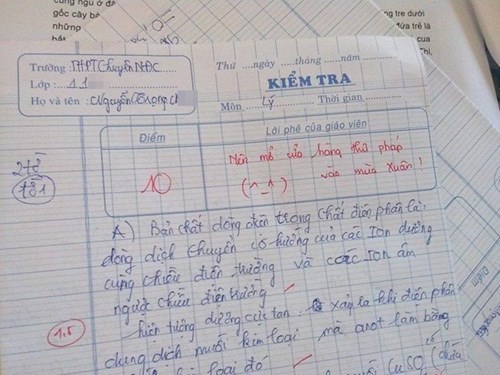 cũng ngủ ở đâ
gốc cây bà
những
ng tre dưới
đứa trẻ là
Trường : THPT Chuyên NĐC
Lớp : 11
Họ và tên : Nguyễn Trọng
Thứ ....ngày ......tháng ......năm......
KIỂM TRA
Môn Lý Thời gian
Điểm
Lời phê của giáo viên
10
Nên mở cửa hàng thư pháp
(^_^) vào mùa xuân !
tổ 1
A) Bản chất dòng điện trong chất điện phân là:
dòng dịch chuyển có hướng của các Ion dương
cùng chiều điện trường và các ION âm
ngược chiều điện trường
1.5
- hiện tượng dương cực tan xảy ra khi điện phân
dung dịch muối kim loại mà anot làm bằng
kim loại đó
muối CuSO4
Điểm